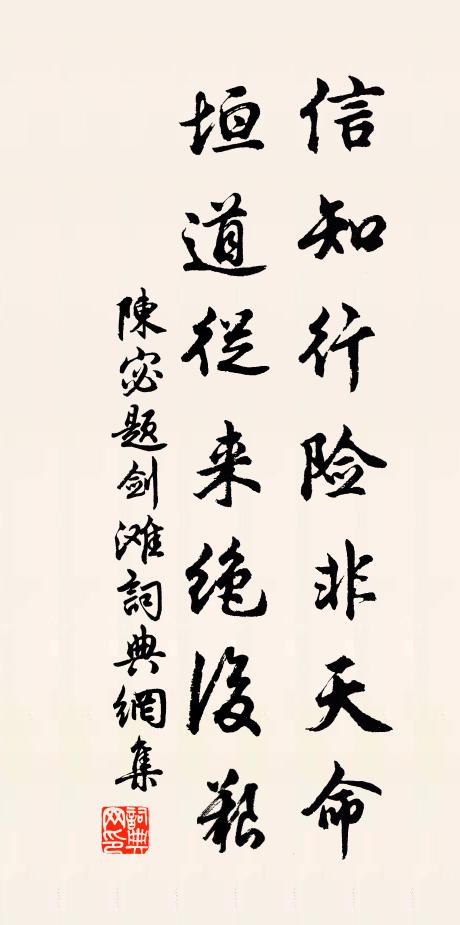 信知行险非天命
垣道從来绝後艱
陳宓题剑滩詞典網集
詞典网印